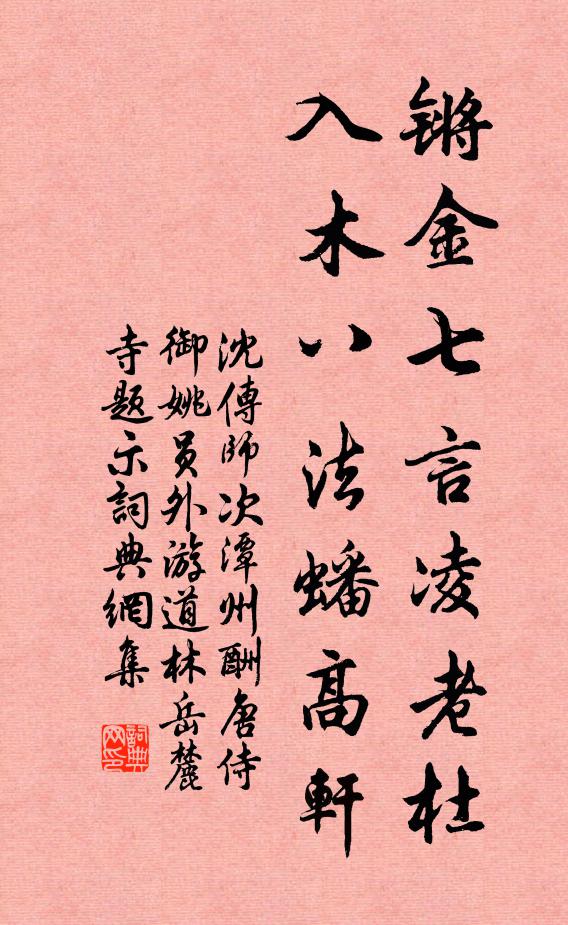 锵金七言凌老杜
入木八法蟠高軒
沈傳師次潭州酬唐侍
御姚員外游道林岳麓
寺題示詞典網集
詞典
网印